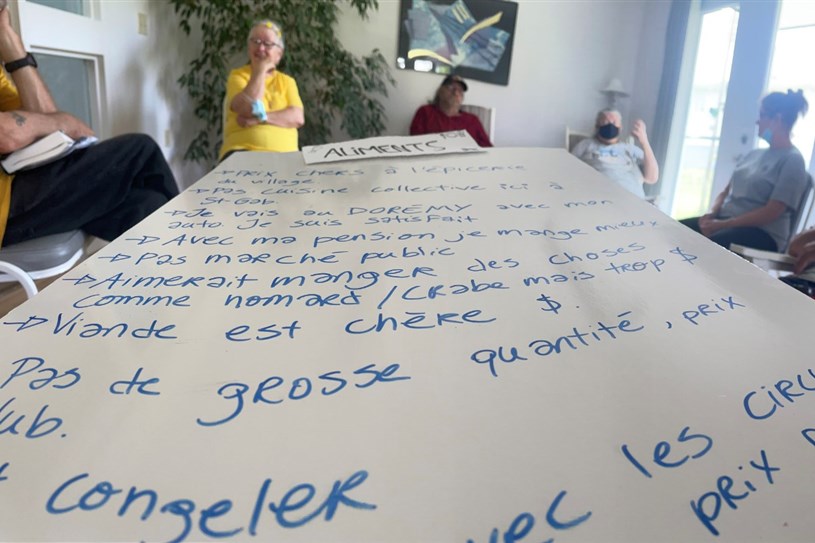 ALIMENTS
→ PRIX CHERS à l'épicerie
du village
→ Pas cuisine collective ici à
St-Gab.
→ Je vais au DOREMY avec mon
auto. Je suis satisfait
→ Avec ma pension je mange mieux
→ Pas marché public
→ Aimerait manger des choses
comme homard/crabe mais trop $
→ Viande est chère $.
Pas de grosse quantité, prix
lub.
congeler
les
prix